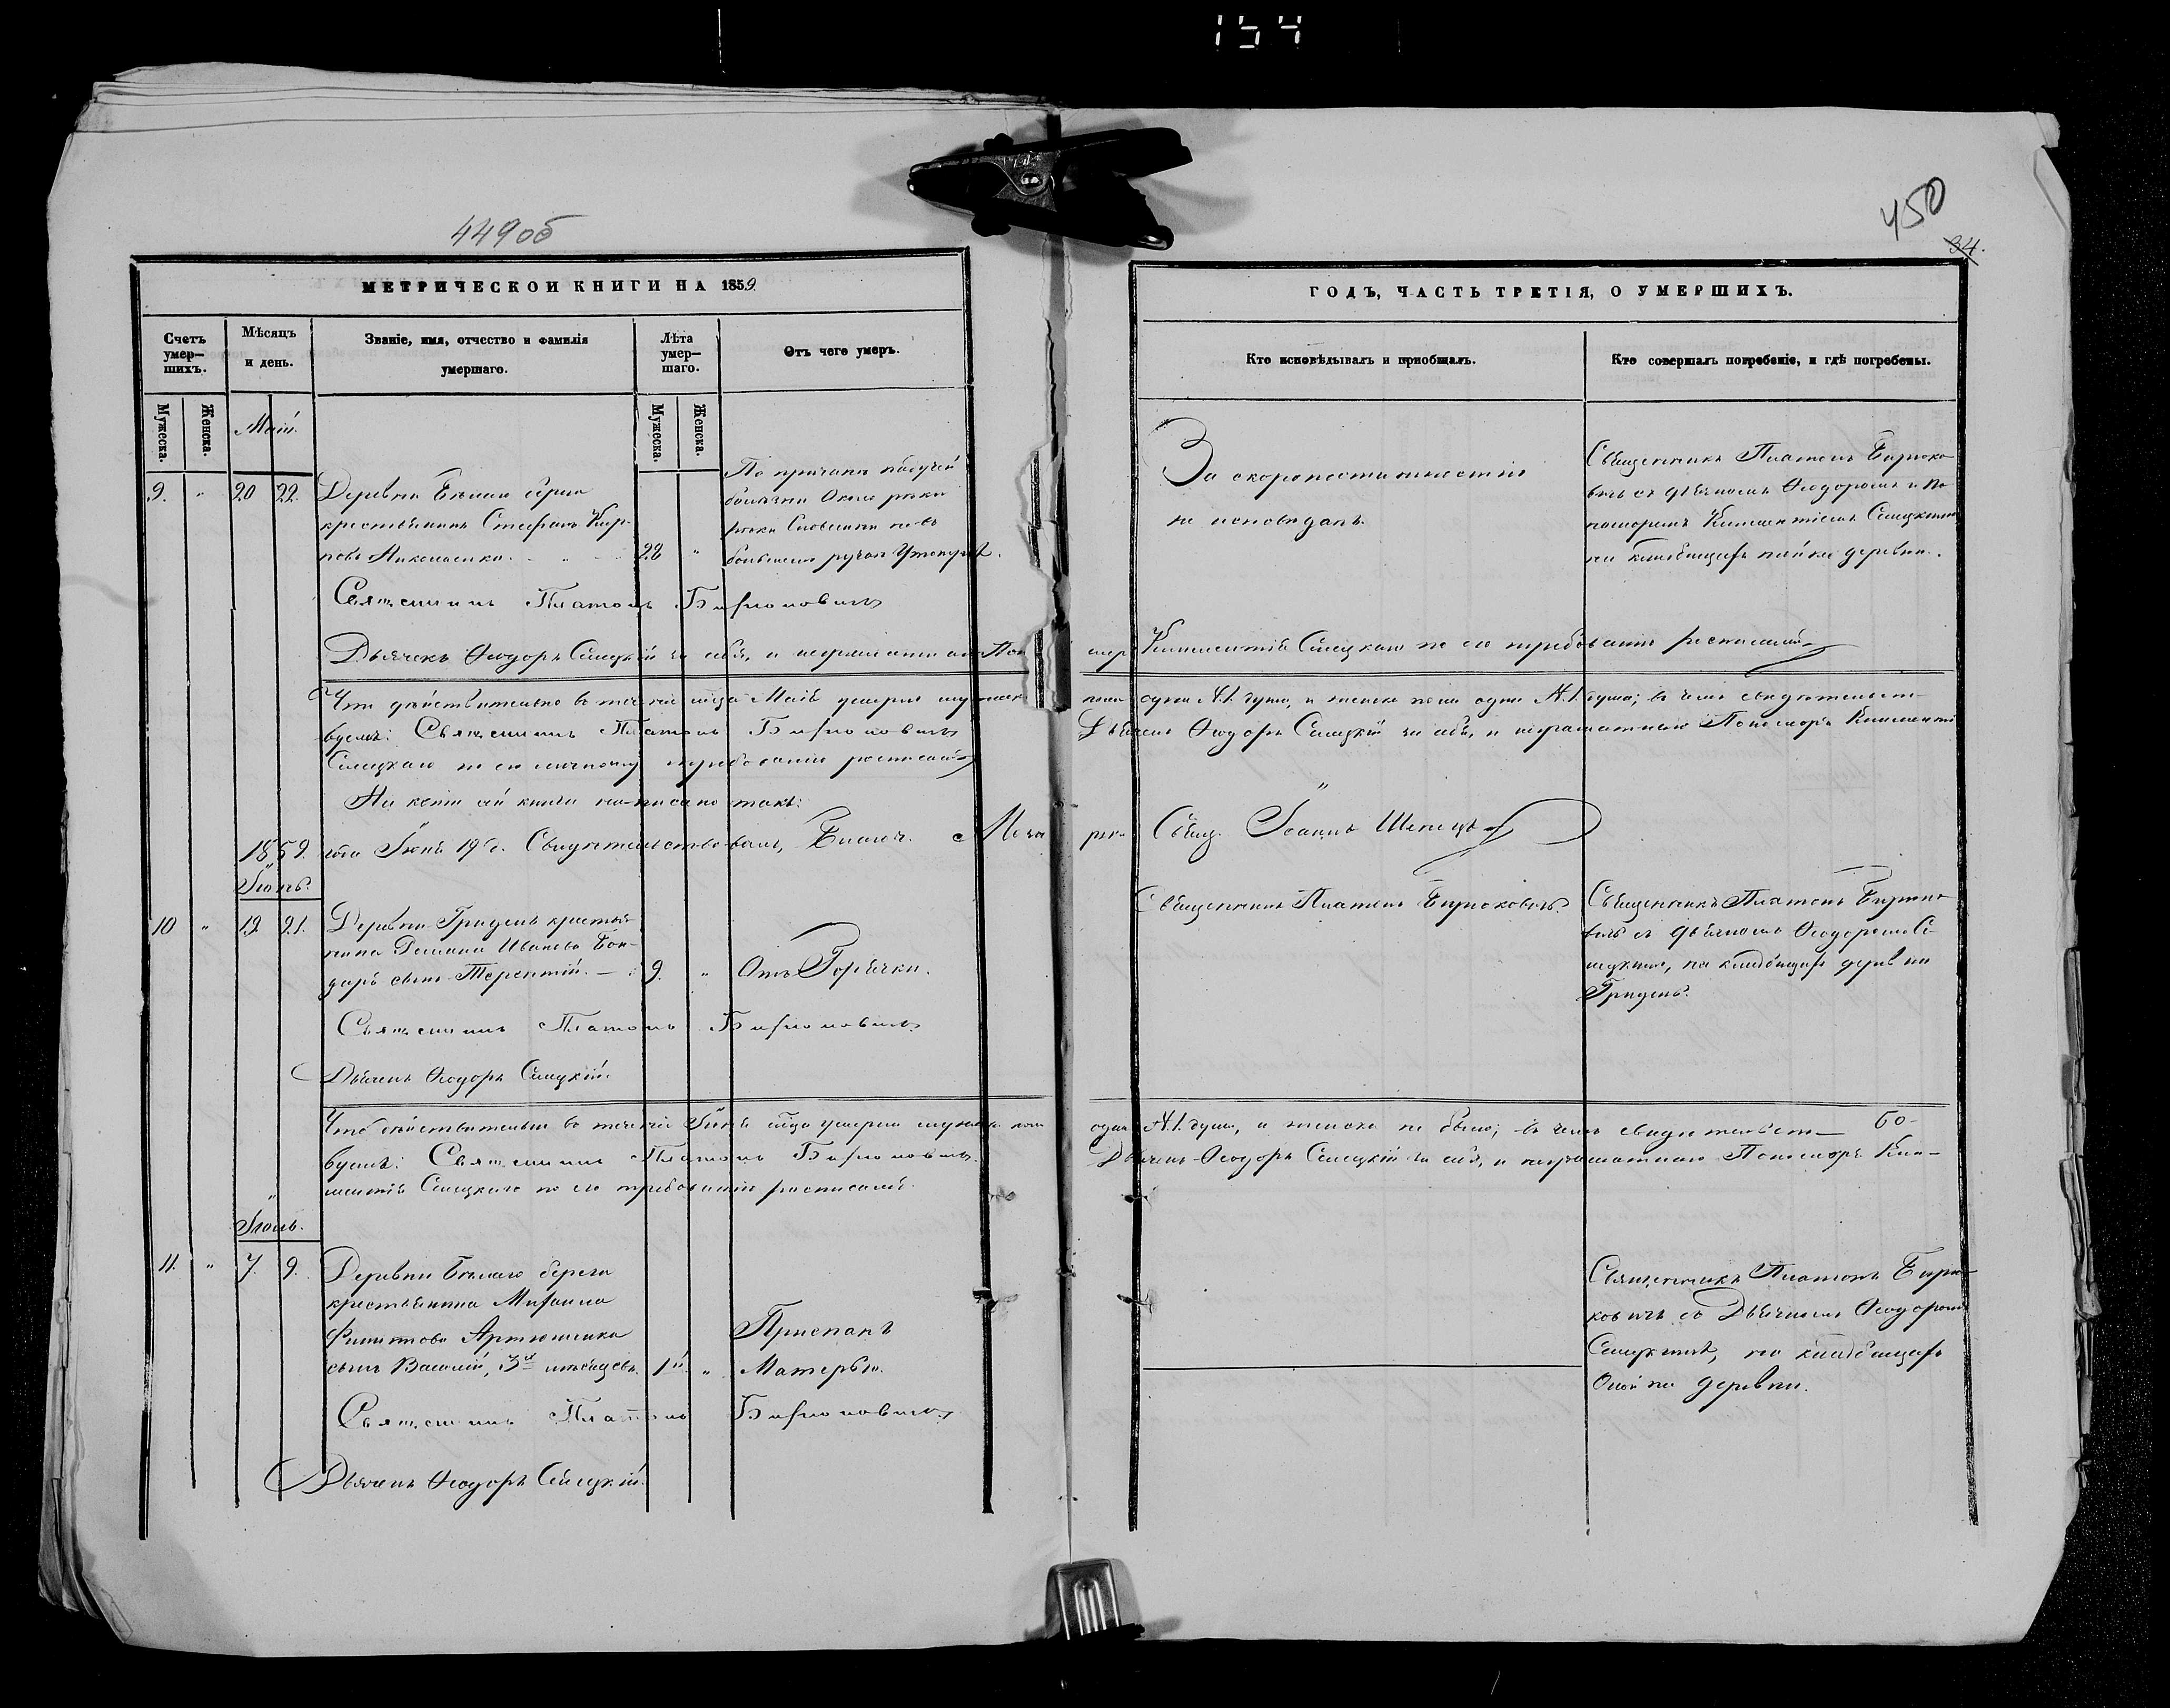 154
449об
450
34.
МЕТРИЧЕСКОЙ КНИГИ НА 1859
ГОДЪ, ЧАСТЬ ТРЕТІЯ, О УМЕРШИХЪ.
Счетъ умер—шихъ.
Мѣсяцъ и день.
Званіе, имя, отчество и фамилія умершаго.
Лѣта умер—шаго.
Отъ чего умеръ.
Кто исповѣдывалъ и приобщалъ.
Кто совершалъ погребеніе, и гдѣ погребены.
Мужеска.
Женска.
Май.
Мужеска.
Женска.
9. " 20 22. Деревни Бѣлаго берега
крестьянинъ Стефанъ
28 "
По причинѣ падучей
болѣзни Около рѣки
рѣки
За скоропостижностію
не исповѣданъ.
Священникъ Платонъ Бирюко
вичъ съ дьячкомъ Ѳеодоромъ и По
номаремъ Климентіемъ Слецкимъ
на кладбищѣ деревни.
Священникъ Платонъ Бирюковичъ
Дьячекъ Ѳеодоръ Слецкій за себя, и неграмотнаго Пономаря Климентія Слецкаго по его требованію росписался
Что дѣйствительно въ теченіи мѣсца Маіѣ умерло мужеска пола одна №1. душа, и женска пола одна №1. душа; въ чемъ свидѣтельст—
вуемъ: Священникъ Платонъ Бирюковичъ
Дьячекъ Ѳеодоръ Слецкій за себя, и неграмотнаго Пономаря Климентія
Слецкаго по его личному требованію росписался
На концѣ сей книги написано такъ:
1859. года Іюнь 19 д. Свидѣтельствовалъ, Священ. Іоаннъ
Іюнь.
10 " 19 21. Деревни Гридень крестья
нина Романа Иванова Бон
даръ сынъ Терентій. — 9. " Отъ Горячки.
Священникъ Платонъ Бирюковичъ.
Священникъ Платонъ Бирюко
вичъ съ дьячкомъ Ѳеодоромъ Сле
цкимъ, на кладбищѣ деревни
Гридень.
Священникъ Платонъ Бирюковичъ
Дьячекъ Ѳеодоръ Слецкій.
Что дѣйствительно въ теченіи Іюнѣ мѣсца умерла мужеска пола одна №1. душа, а женска не было; въ чемъ свидѣтельст—
вуемъ: Священникъ Платонъ Бирюковичъ.
Дьячекъ Ѳеодоръ Слецкій за себя, и неграмотнаго Пономаря Кли—
ментія Слецкаго по его требованію росписался.
Іюль.
11. " 7. 9. Деревни Бѣлаго берега
крестьянина Михаила
Филиппова Артюшенка
сынъ Василій, 3х мѣсяцевъ. "
Приспанъ
Матерью.
Священникъ Платонъ Бирю—
ковичъ съ Дьячкомъ Ѳеодоромъ
Слецкимъ, на кладбищѣ
деревни.
Священникъ Платонъ Бирюковичъ
Дьячекъ Ѳеодоръ Слецкій.